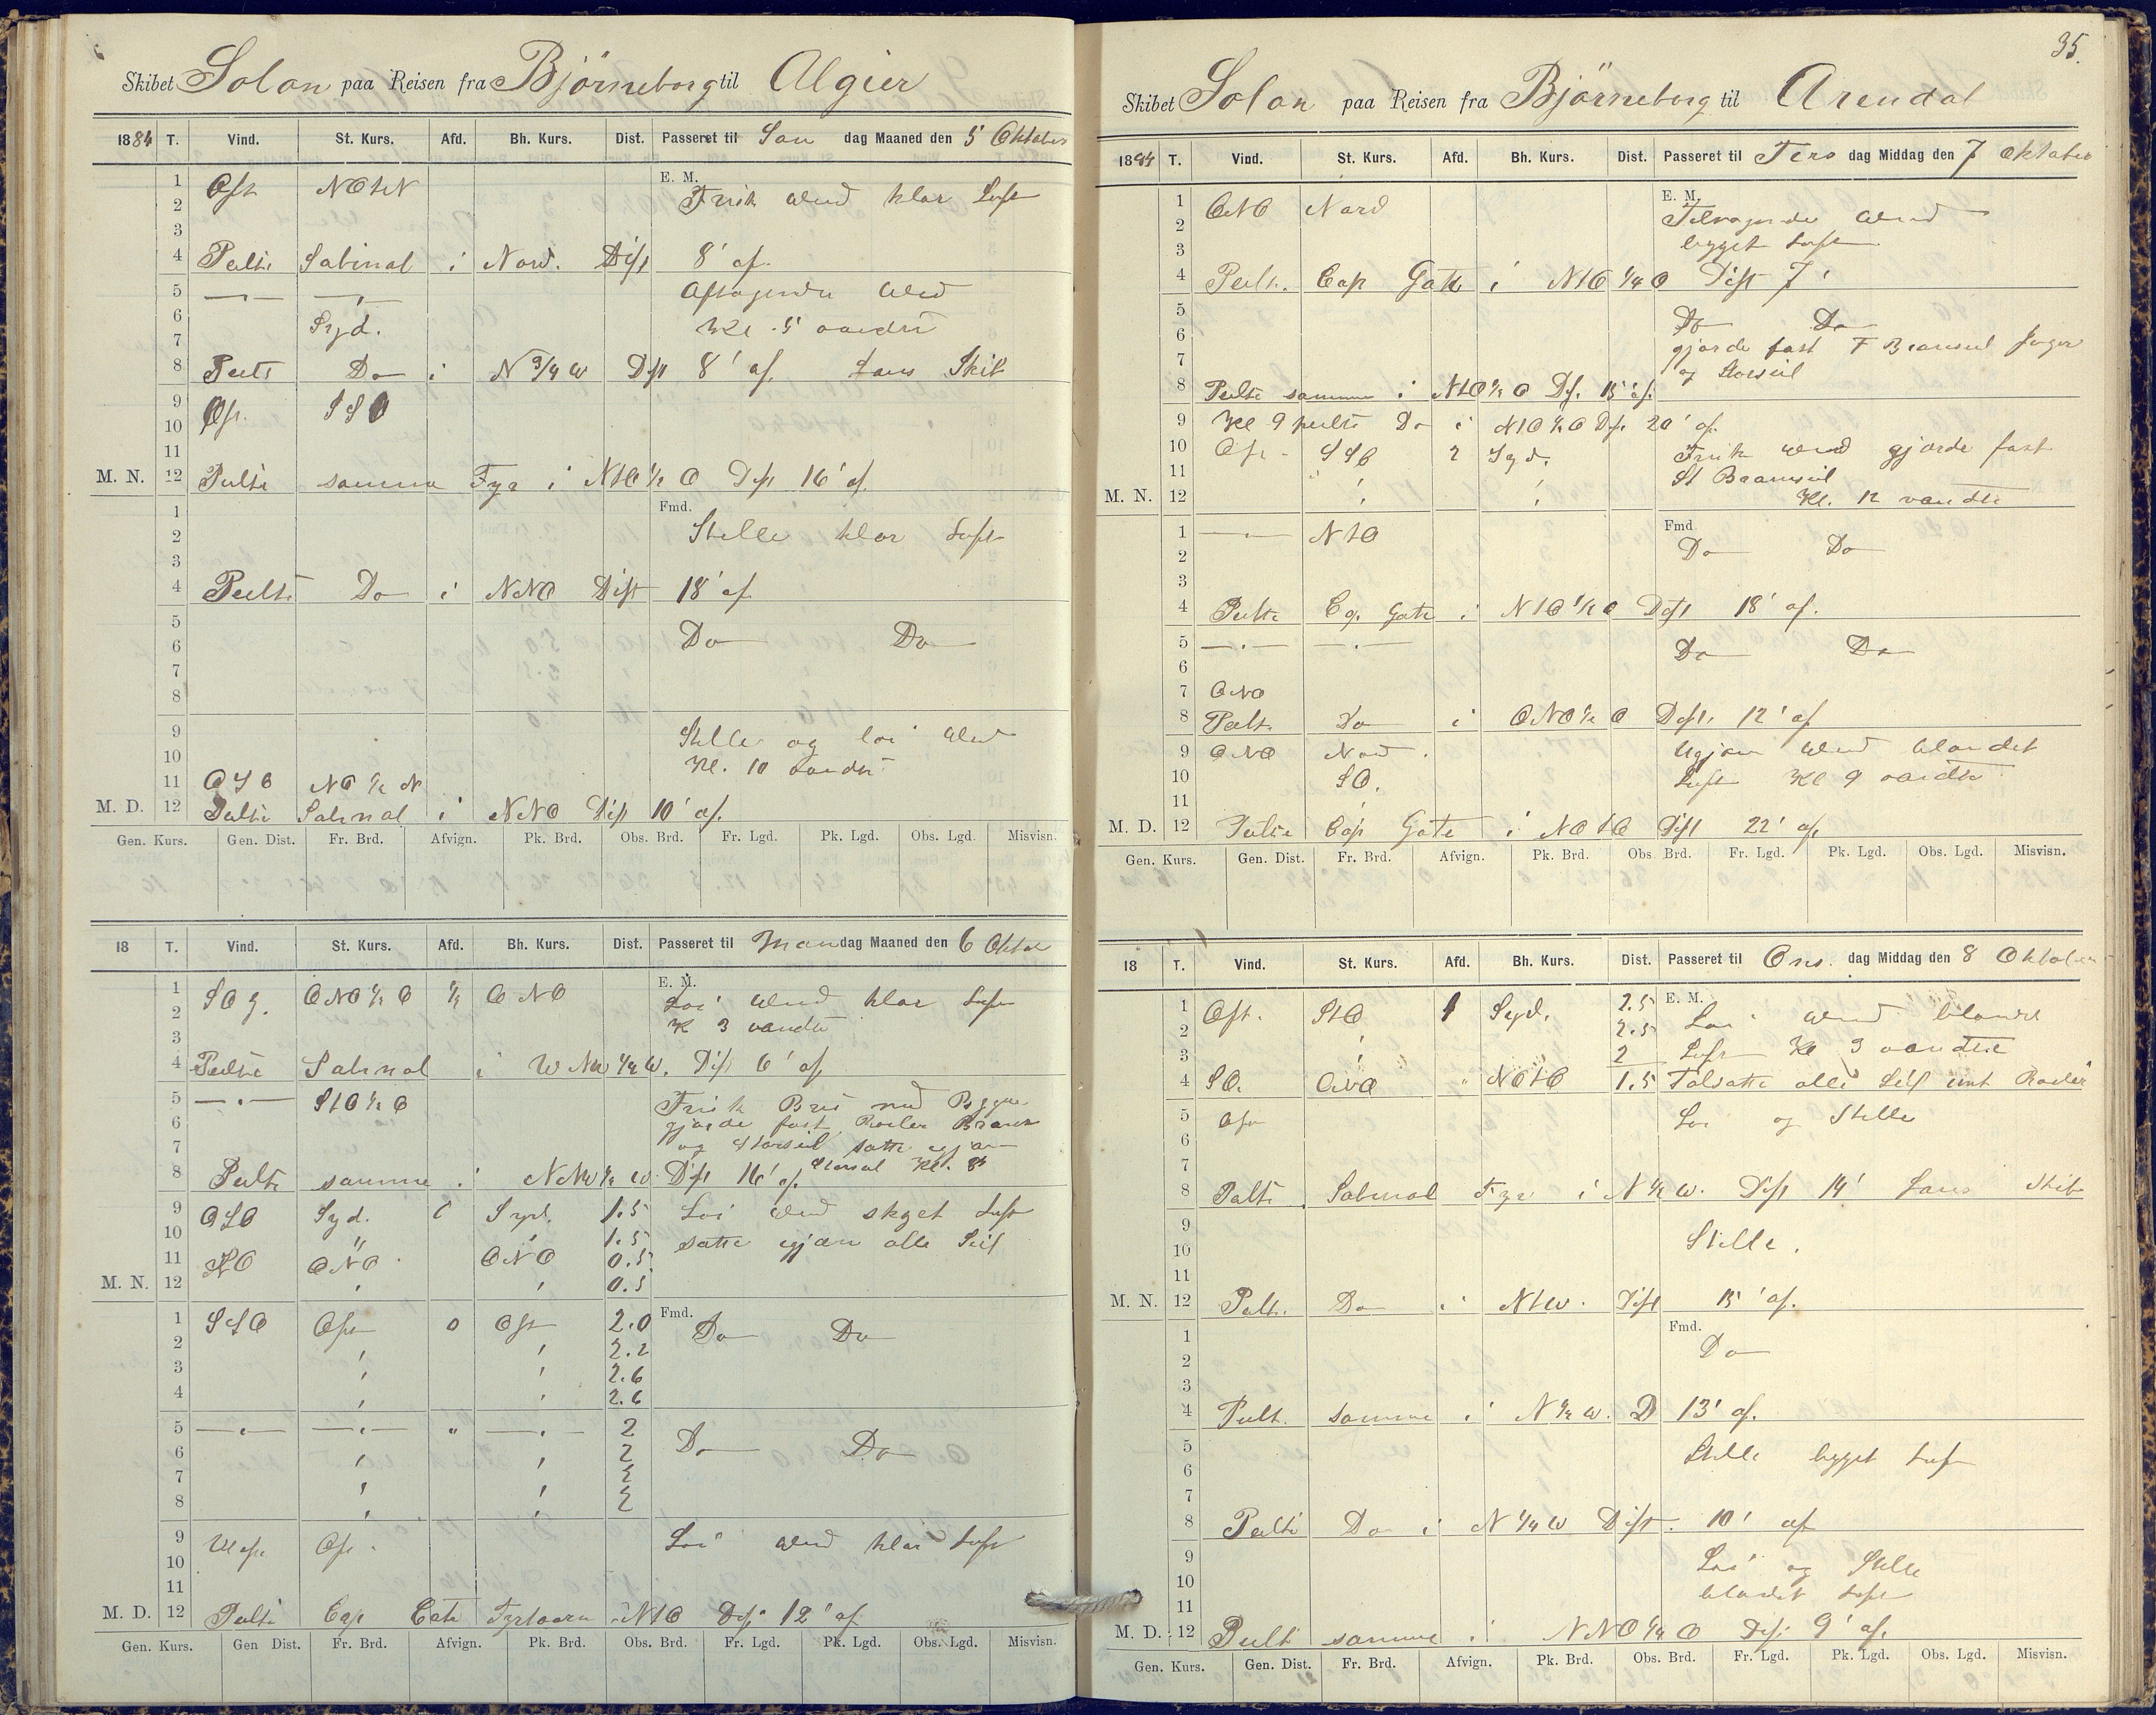 Skibet Solon paa Reisen fra Björneborg til Algier
1884 T. Vind. St. Kurs. Afd. Bh. Kurs. Dist. Passeret til Søn dag Maaned den 5 Oktober
E. M.
1 Ost NOtN Frisk Vind klar Luft
2
3
4 Peilte Sabinal i Nord. Dist 8' af.
5 Aftagende Vind
6 Syd. Kl. 5 vendte
7
8 Peilte Do i N 3/4 W Dist 8' af. Lans Skib
9 Ost. SSO
10
11
M. N. 12 Peilte samme Fyr i NtO 1/2 O Dist 16' af.
Fmd.
1
2 Stille klar Luft
3
4 Peilte Do i NNO Dist 18' af
5
6 Do Do
7
8
9 Stille og löi Vind
10 Kl. 10 vendte
11 OSO NO 1/2 N
M. D. 12 Peilte Sabinal i NNO Dist 10' af.
Gen. Kurs. Gen. Dist. Fr. Brd. Afvign. Pk. Brd. Obs. Brd. Fr. Lgd. Pk. Lgd. Obs. Lgd. Misvisn.
18 T. Vind. St. Kurs. Afd. Bh. Kurs. Dist. Passeret til Mandag Maaned den 6 Oktober
E. M.
1 ONO 1/2 O 1/2 ONO Löi Vind klar Luft
2 Kl 3 vendte
3
4 Peilte Sabinal i WNW 1/2 W. Dist 6' af
5 StO 1/2 O Frisk Bris med Bygger
6 gjorde fast Røiler Bram
7 og Storseil satte igjen
8 Peilte samme i NNW 1/2 W. Dist 16' af. Storseil Kl. 8
9 OSO Syd. 0 Syd. 1.5 Löi Vind skyet Luft
10 " 1.5 satte igjen alle Seil
11 SO ONO ONO 0.5
M. N. 12 0.5
Fmd.
1 SSO Ost 0 Ost 2.0 Do Do
2 2.2
3 2.6
4 2.6
5 " 2
6 2 Do Do
7 2
8 2
9 Ost Löi Vind klar Luft
10
11
M. D. 12 Peilte Cap Gate Fyrtaarn NtO Dist 12' af
Gen. Kurs. Gen Dist. Fr. Brd. Afvign. Pk. Brd. Obs. Brd. Fr. Lgd. Pk. Lgd. Obs. Lgd. Misvisn.
35.
Skibet Solon paa Reisen fra Björneborg til Arendal
1884 T. Vind. St. Kurs. Afd. Bh. Kurs. Dist. Passeret til Tirs dag Middag den 7 Oktober
E. M.
1 ONO Nord Tiltagende Vind
2 bygget Luft
3
4 Peilt. Cap Gate i NtO 1/4 O Dist 7'
5 Do Do
6 gjorde fast F Bramseil Jager
7 og Storseil
8 Peilte samme i NtO 1/2 O Dist. 15' af.
9 Kl 9 peilte Do i NtO 1/2 O Dist 20' af.
10 Ost SSO 2 Syd. Frisk Vind gjorde fast
11 St Bramseil
M. N. 12 Kl. 12 vendte
Fmd
1 NtO Do Do
2
3
4 Peilte Cap Gate i NtO 1/2 O Dist 18' af.
5
6 Do Do
7 ONO
8 Peilt. Do i ONO 1/2 O Dist. 12' af
9 ONO Nord. Ujævn Vind blandet
10 SO. Luft Kl 9 vendte
11
M. D. 12 Peilte Cap Gate i NOtO Dist 22' af.
Gen. Kurs. Gen. Dist. Fr. Brd. Afvign. Pk. Brd. Obs. Brd. Fr. Lgd. Pk. Lgd. Obs. Lgd. Misvisn.
18 T. Vind. St. Kurs. Afd. Bh. Kurs. Dist. Passeret til Ons. dag Middag den 8 Oktober
E. M.
1 Ost. StO 1 Syd. 2.5 Löi Vind blandet
2 2.5
3 2 Luft Kl 3 vendte
4 SO. ONO " NOtO 1.5 Tilsatte alle Seil unt Røiler
5 Ost Löi og Stille
6
7
8 Peilte Sabinal Fyr i N 1/2 W. Dist 14' Lans Skib
9 Stille.
10
11
M. N. 12 Peilt. Do i NtW. Dist 15' af.
Fmd.
1 Do
2
3
4 Peilt. samme i N 1/2 W. D 13' af.
5 Stille bygget Luft
6
7
8 Peilte Do i N 1/4 W Dist. 10' af
9 Löi og Stille
10 blandet Luft
11
M. D. 12 Peilt samme i NNO 1/4 O Dist. 9' af.
Gen. Kurs. Gen. Dist. Fr. Brd. Afvign. Pk. Brd. Obs. Brd. Fr. Lgd. Pk. Lgd. Obs. Lgd. Misvisn.